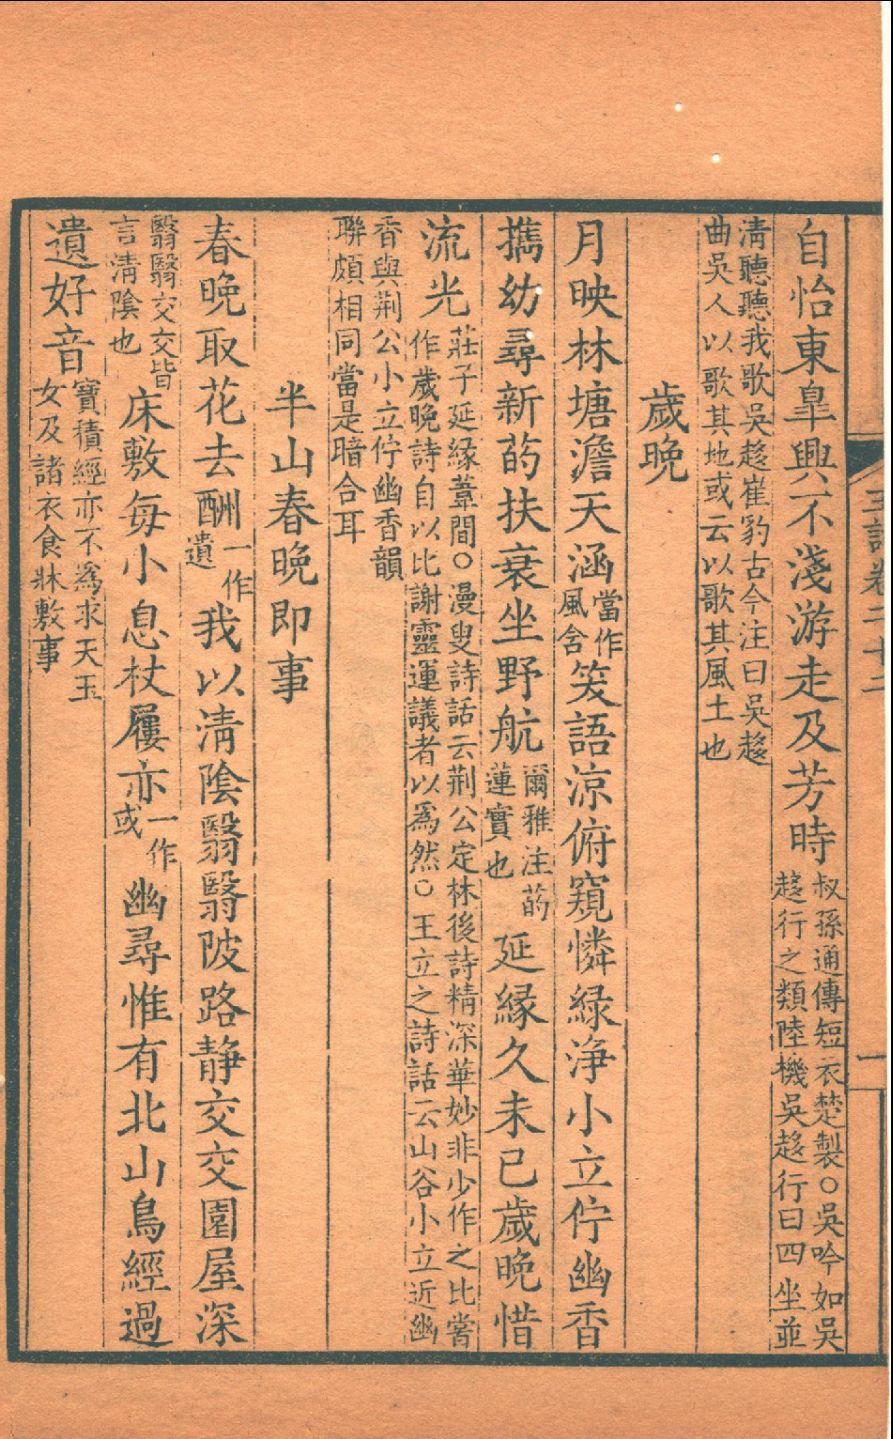 自怡東臯興不淺游走及芳時叔孫通傳短衣楚製○吳吟如吳趍行之類陸機吳趍行曰四坐並
清聽聽我歌吳趍崔豹古今注曰吳趍曲吳人以歌其地或云以歌其風土也
歲晚
月映林塘澹天涵當作風含笑語涼俯窺憐緑浄小立佇幽香
攜幼尋新菂扶衰坐野航爾雅注菂蓮實也延縁久未已歲晚惜
流光莊子延縁葦間○漫叟詩話云荆公定林後詩精深華妙非少作之比嘗作歲晚詩自以比謝靈運議者以爲然○王立之詩話云山谷小立近幽
香與荆公小立佇幽香韻聯頗相同當是暗合耳
半山春晚即事
春晚取花去酬一作遺我以清陰翳翳陂路静交交園屋深
翳翳交交皆言清陰也床敷每小息杖屨亦一作或幽尋惟有北山鳥經過
遺好音寶積經亦不爲求天玉女及諸衣食牀敷事